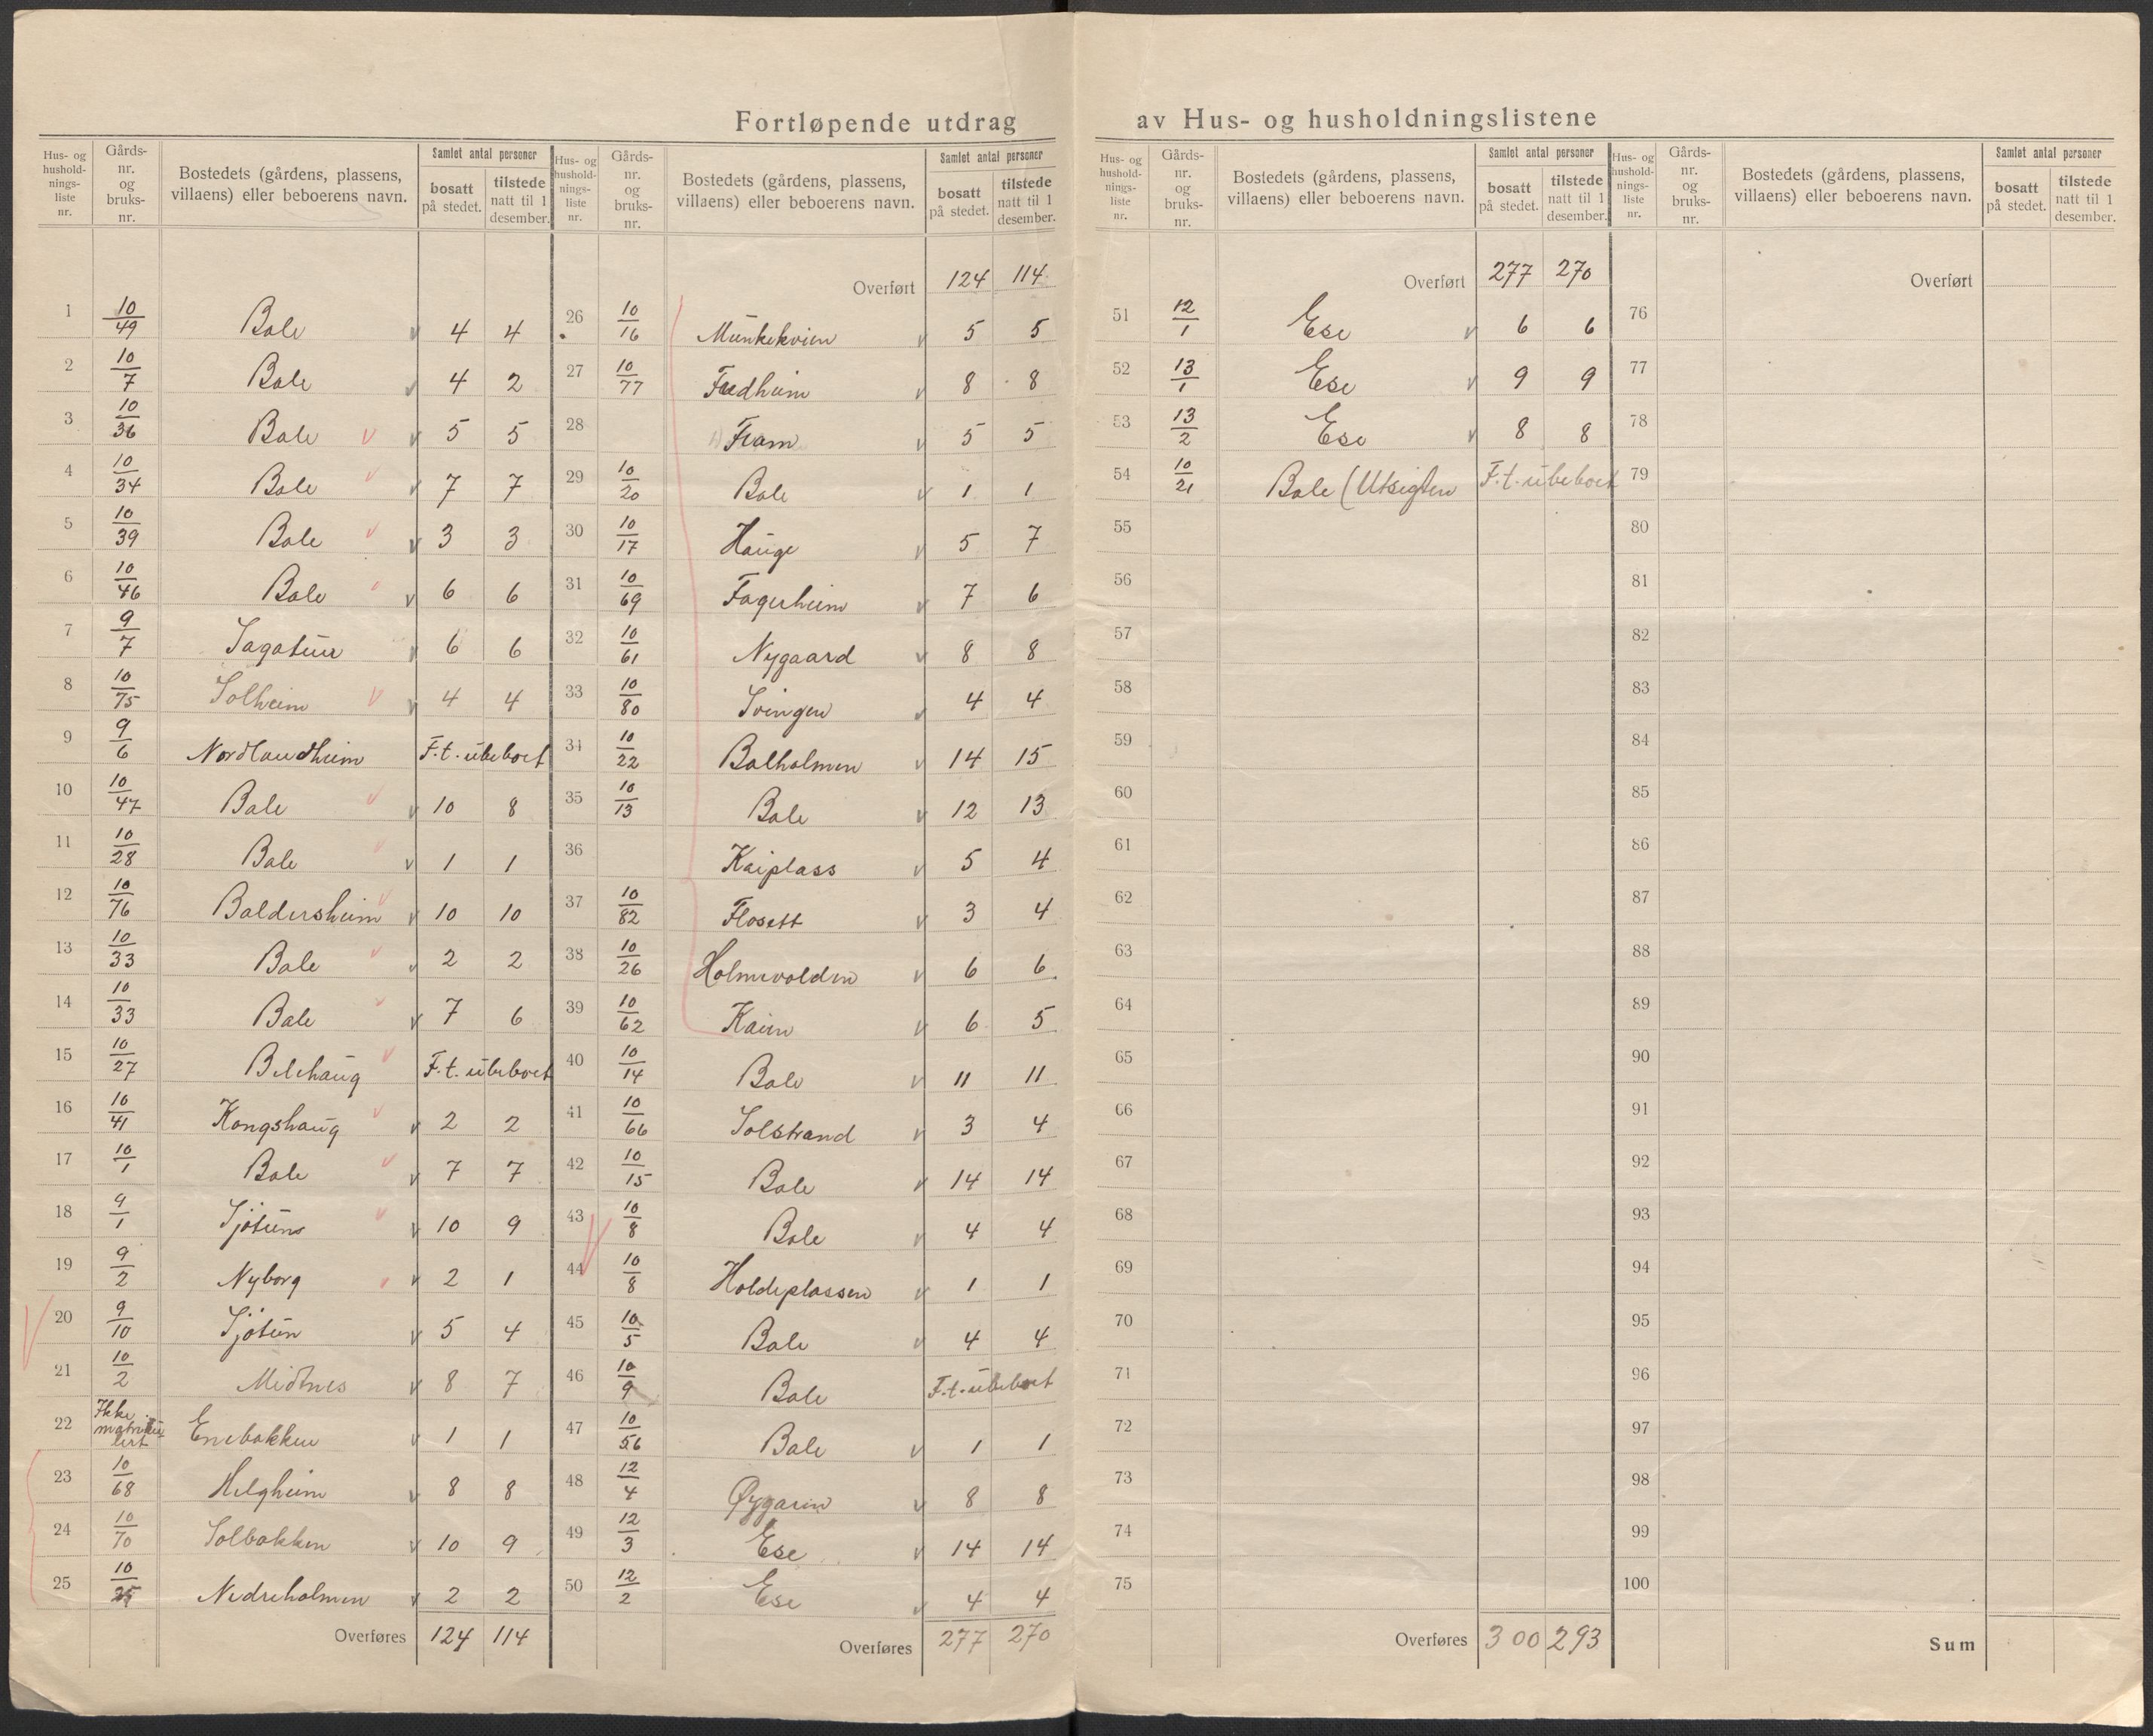 Fortløpende utdrag av Hus- og husholdningslistene
Hus- og hushold-nings-liste nr. | Gårds-nr. og bruks-nr. | Bostedets (gårdens, plassens, villaens) eller beboerens navn. | Samlet antal personer | bosatt på stedet. | tilstede natt til 1 desember.
1 10/49 Bale 4 4
2 10/7 Bale 4 2
3 10/36 Bale 5 5
4 10/34 Bale 7 7
5 10/39 Bale 3 3
6 10/46 Bale 6 6
7 9/7 Sagatun 6 6
8 10/75 Solheim 4 4
9 9/6 Nordlandheim F.t. ubeboet
10 10/47 Bale 10 8
11 10/28 Bale 1 1
12 10/76 Baldersheim 10 10
13 10/33 Bale 2 2
14 10/33 Bale 7 6
15 10/27 Belehaug F.t. ubeboet
16 10/41 Kongshaug 2 2
17 10/1 Bale 7 7
18 9/1 Sjøtuns 10 9
19 9/2 Nyborg 2 1
20 9/10 Sjøtun 5 4
21 10/2 Midtnes 8 7
22 Ikke matriku-lert Enebakken 1 1
23 10/68 Helgheim 8 8
24 10/70 Solbakken 10 9
25 10/25 Nedreholmen 2 2
Overføres 124 114
Hus- og hushold-nings-liste nr. | Gårds-nr. og bruks-nr. | Bostedets (gårdens, plassens, villaens) eller beboerens navn. | Samlet antal personer | bosatt på stedet. | tilstede natt til 1 desember.
Overført 124 114
26 10/16 Munkekvien 5 5
27 10/77 Fredheim 8 8
28 Fram 5 5
29 10/20 Bale 1 1
30 10/17 Hauge 5 7
31 10/69 Fagerheim 7 6
32 10/61 Nygaard 8 8
33 10/80 Svingen 4 4
34 10/22 Balholmen 14 15
35 10/13 Bale 12 13
36 Kaiplass 5 4
37 10/82 Flosett 3 4
38 10/26 Holmevolden 6 6
39 10/62 Kaien 6 5
40 10/14 Bale 11 11
41 10/66 Solstrand 3 4
42 10/15 Bale 14 14
43 10/8 Bale 4 4
44 10/8 Holdeplassen 1 1
45 10/5 Bale 4 4
46 10/9 Bale F.t. ubeboet
47 10/56 Bale 1 1
48 12/4 Øygaren 8 8
49 12/3 Ese 14 14
50 12/2 Ese 4 4
Overføres 277 270
Hus- og hushold-nings-liste nr. | Gårds-nr. og bruks-nr. | Bostedets (gårdens, plassens, villaens) eller beboerens navn. | Samlet antal personer | bosatt på stedet. | tilstede natt til 1 desember.
Overført 277 270
51 12/1 Ese 6 6
52 13/1 Ese 9 9
53 13/2 Ese 8 8
54 10/21 Bale (Utsigten F.t. ubeboet
55
56
57
58
59
60
61
62
63
64
65
66
67
68
69
70
71
72
73
74
75
Overføres 300 293
Hus- og hushold-nings-liste nr. | Gårds-nr. og bruks-nr. | Bostedets (gårdens, plassens, villaens) eller beboerens navn. | Samlet antal personer | bosatt på stedet. | tilstede natt til 1 desember.
Overført
76
77
78
79
80
81
82
83
84
85
86
87
88
89
90
91
92
93
94
95
96
97
98
99
100
Sum